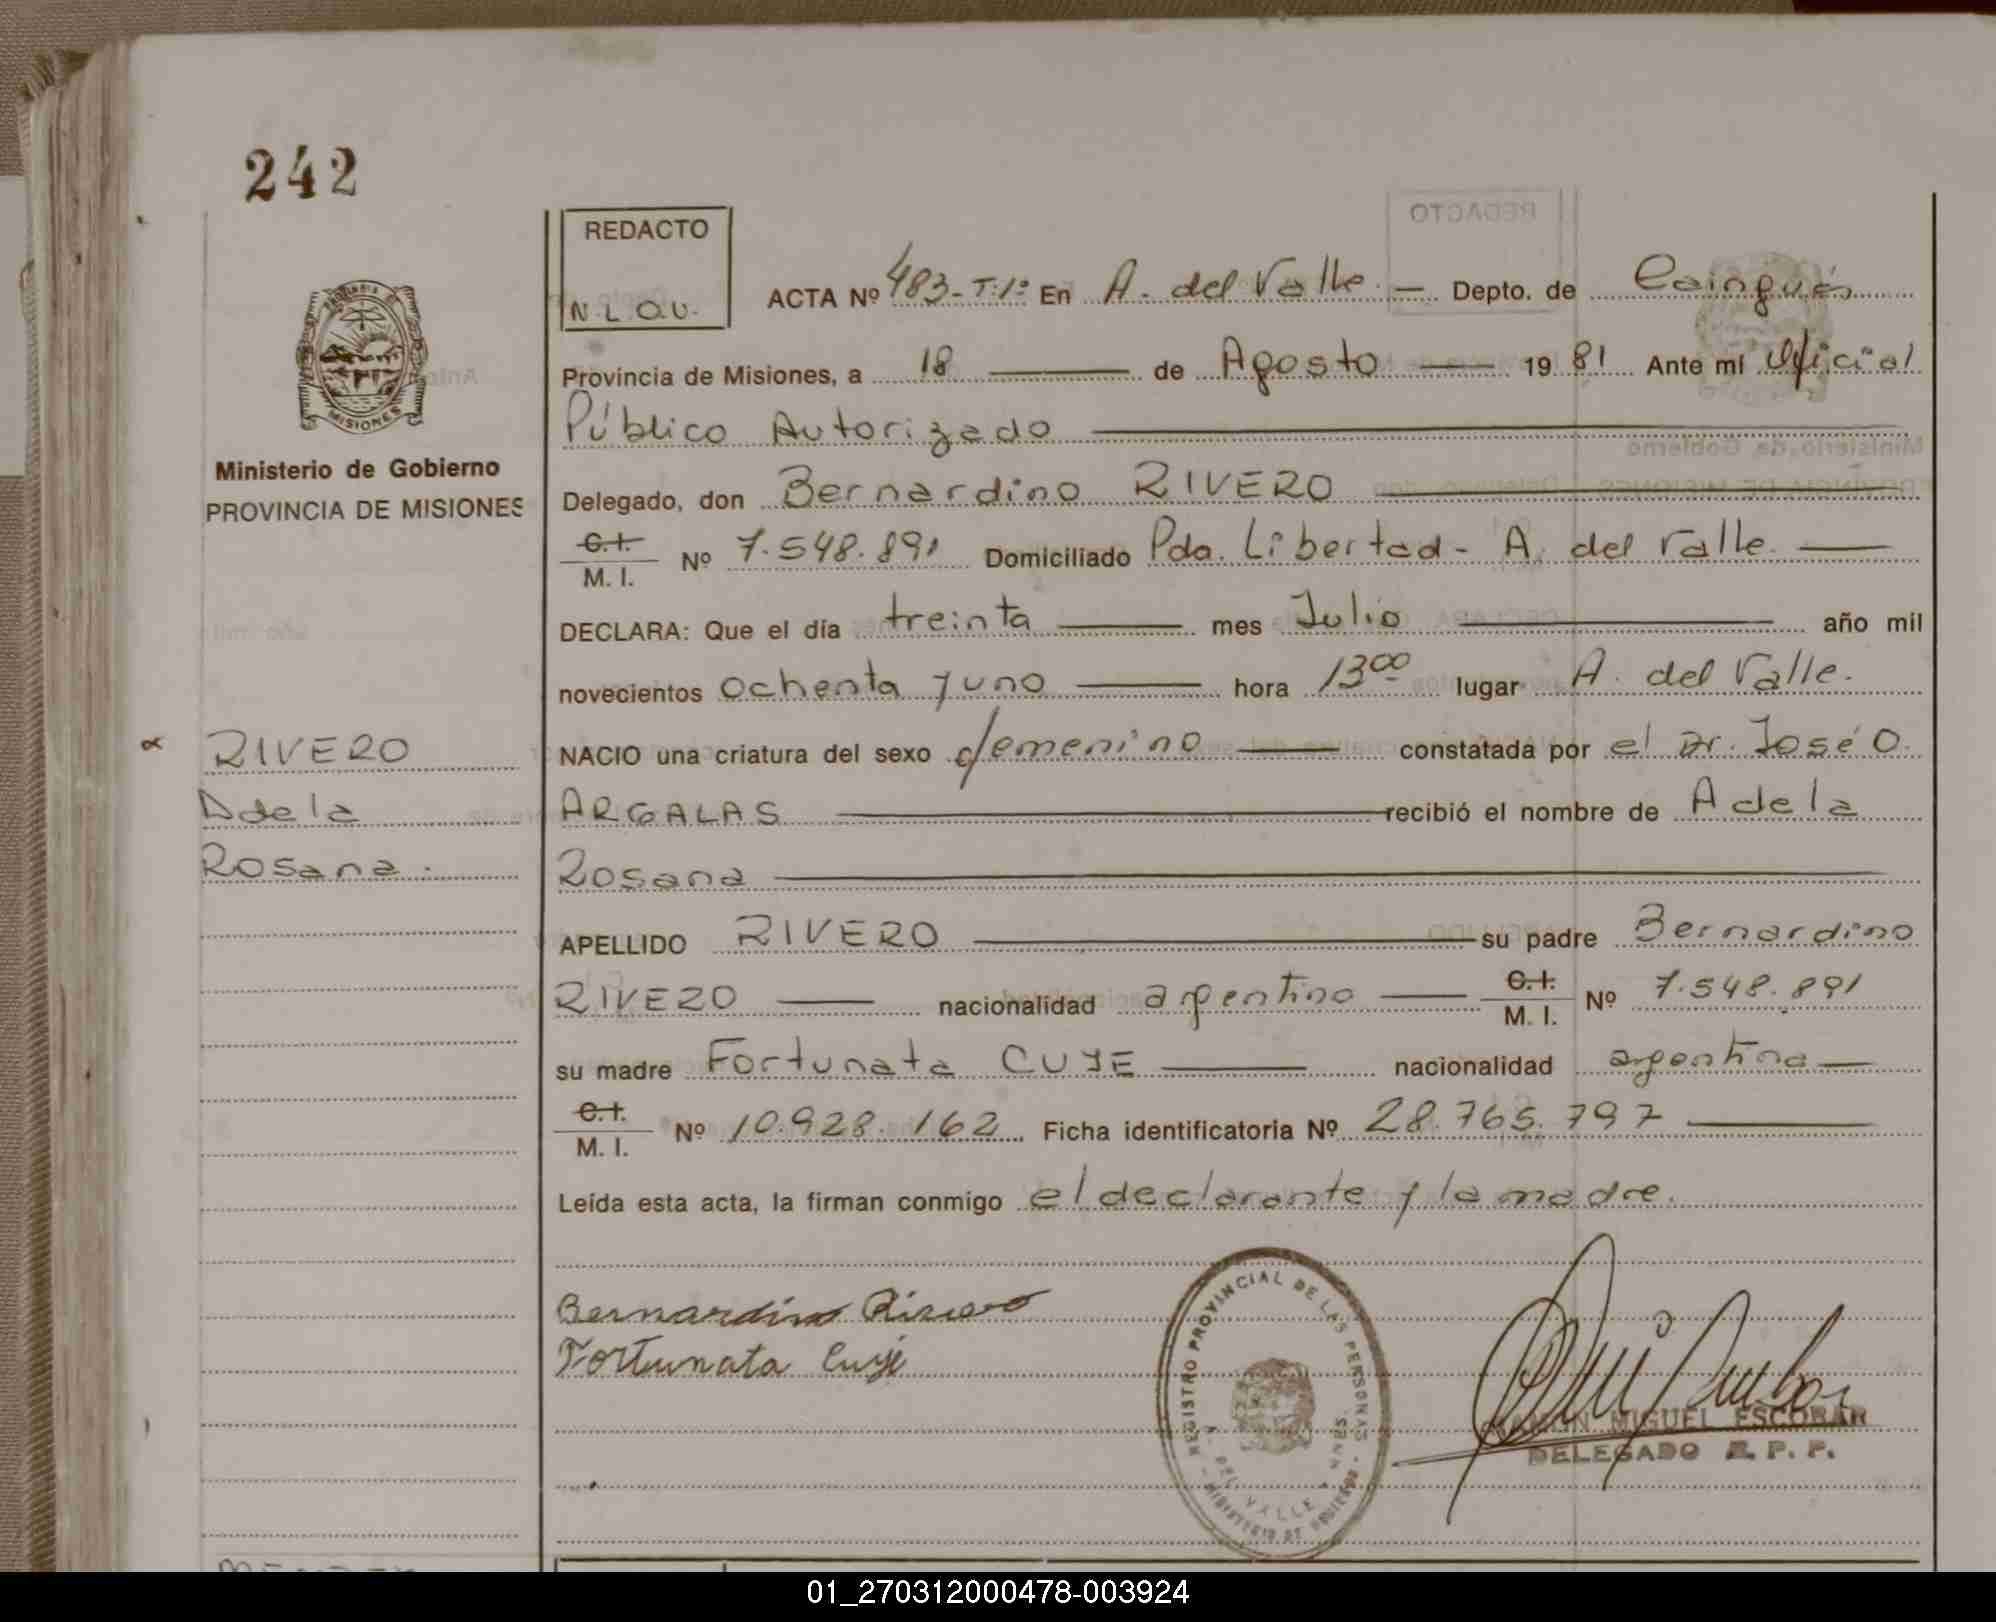 242
REDACTO
N.L.O.V.
ACTA Nº 483-T.1º En A. del Valle. — Depto. de Cainguás
MISIONES
Provincia de Misiones, a 18 — de Agosto — 19 81 Ante mí Oficial
Público Autorizado —
Ministerio de Gobierno
PROVINCIA DE MISIONES
Delegado, don Bernardino RIVERO —
C.I. / M. I. Nº 7.548.891 Domiciliado Pda. Libertad - A. del Valle. —
DECLARA: Que el día treinta — mes Julio — año mil
novecientos ochenta y uno — hora 13 00 lugar A. del Valle.
RIVERO
NACIO una criatura del sexo femenino — constatada por el Dr. José O.
Adela
ARGALAS — recibió el nombre de Adela
Rosana.
Rosana —
APELLIDO RIVERO — su padre Bernardino
RIVERO — nacionalidad argentino — C.I. / M. I. Nº 7.548.891
su madre Fortunata CUJE — nacionalidad argentina —
C.I. / M. I. Nº 10.928.162 Ficha identificatoria Nº 28.765.797 —
Leída esta acta, la firman conmigo el declarante y la madre.
Bernardino Rivero
Fortunata Cuje
REGISTRO PROVINCIAL DE LAS PERSONAS
A. DEL VALLE
RAMON MIGUEL ESCOBAR
DELEGADO R. P. P.
01_270312000478-003924